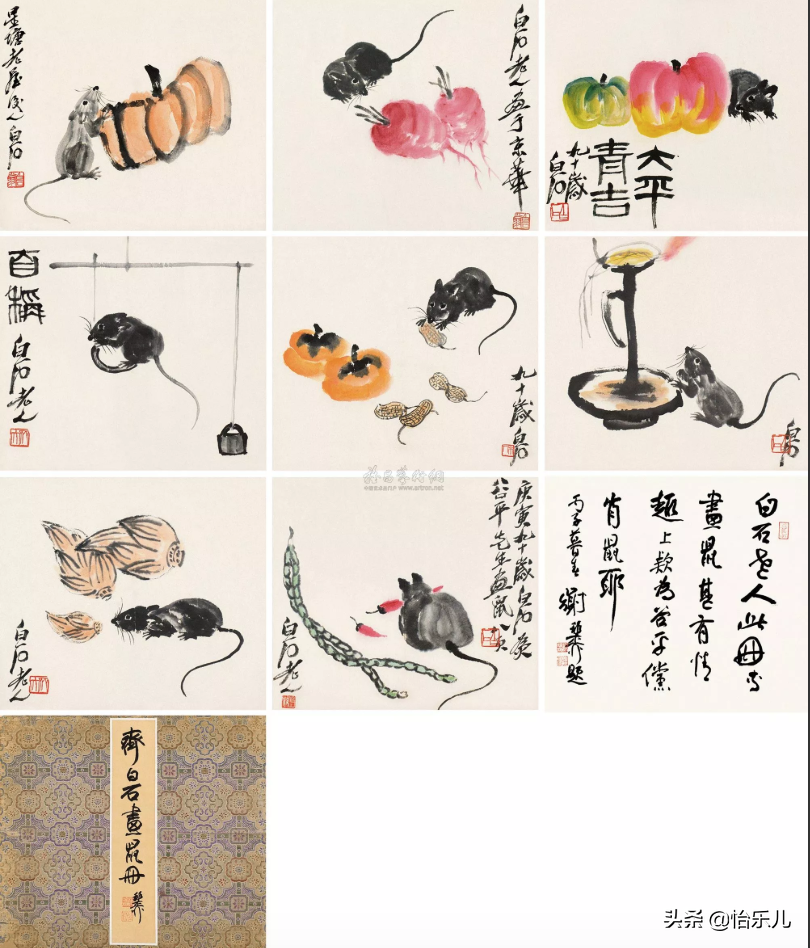 星塘老屋后人白石
白石老人畫于京華
大平
青吉
九十歲
白石
自稱
白石老人
九十歲白石
白石
白石老人
庚寅九十歲白石
谷平先生畫鼠八頁
白石老人
白石老人此冊
畫鼠甚有情
趣上款為谷平儻
肖鼠耶
丙子暮春 謝稚柳題
齊白石畫鼠冊 稚柳
雅昌艺术网
www.artron.net
头条 @怡乐儿